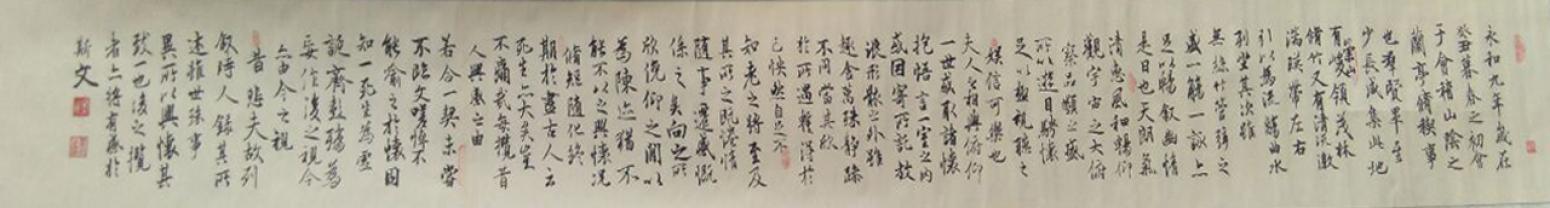 永和九年歲在
癸丑暮春之初會
于會稽山陰之
蘭亭脩禊事
也群賢畢至
少長咸集此地
有崇山峻領茂林
脩竹又有清流激
湍暎帶左右
引以為流觴曲水
列坐其次雖
無絲竹管弦之
盛一觴一詠亦
足以暢敘幽情
是日也天朗氣
清惠風和暢仰
觀宇宙之大俯
察品類之盛
所以遊目騁懷
足以極視聽之
娛信可樂也
夫人之相與俯仰
一世或取諸懷
抱悟言一室之內
或因寄所託放
浪形骸之外雖
趣舍萬殊靜躁
不同當其欣
於所遇暫得於
己怏然自足不
知老之將至及
其所之既惓情
隨事遷感慨
係之矣向之所
欣俛仰之閒以
為陳迹猶不
能不以之興懷況
脩短隨化終
期於盡古人云
死生亦大矣豈
不痛哉每攬昔
人興感之由
若合一契未嘗
不臨文嗟悼不
能喻之於懷固
知一死生為虛
誕齊彭殤為
妄作後之視今
亦由今之視
昔悲夫故列
敘時人錄其所
述雖世殊事
異所以興懷其
致一也後之攬
者亦將有感於
斯文